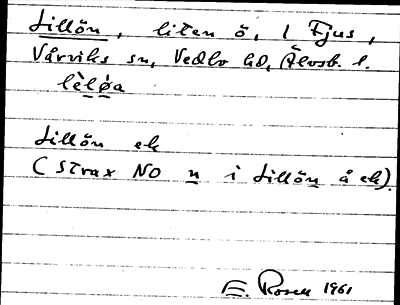 Lillön, liten ö, i Fjus,
Vårviks sn, Vedbo hd, Älvsb. l.
lèlø̀a
Lillön ek
(Strax NO n i Lillön å ek).
E. Rosell 1961